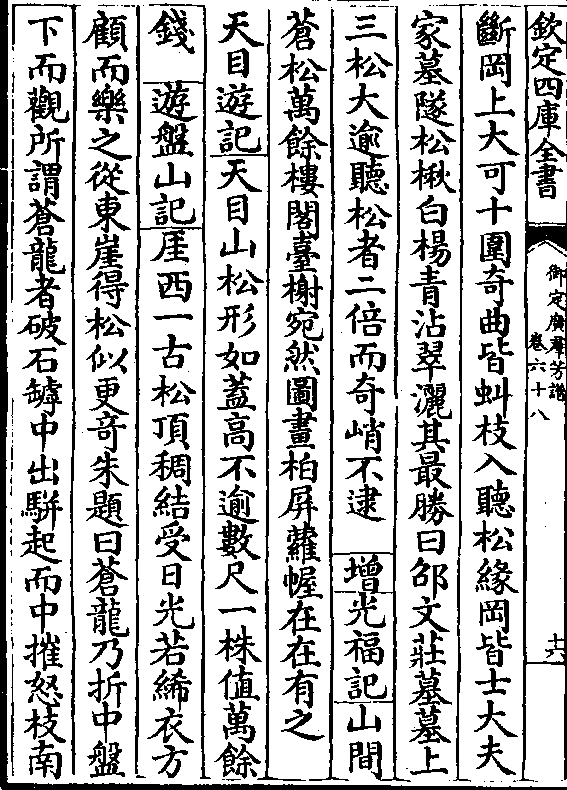 欽定四庫全書
御定廣羣芳譜
卷六十八
十六
斷岡上大可十圍奇曲皆虬枝入聽松緣岡皆士大夫
家墓隧松楸白楊青沾翠灑其最勝曰邵文莊墓墓上
三松大逾聽松者二倍而奇峭不逮 增光福記山間
蒼松萬餘樓閣臺榭宛然圖畫柏屏蘿幄在在有之
天目遊記天目山松形如蓋高不逾數尺一株值萬餘
錢 遊盤山記厓西一古松頂稠結受日光若絺衣方
顧而樂之從東崖得松似更奇朱題曰蒼龍乃折中盤
下而觀所謂蒼龍者破石罅中出騈起而中摧怒枝南